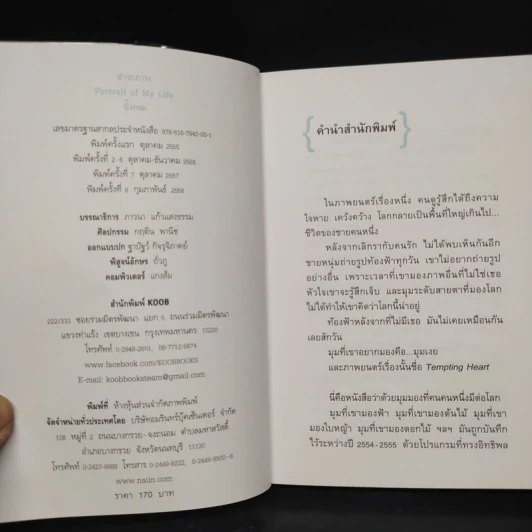 สารภาพ
Portrait of My Life
นิ้วกลม
เลขมาตรฐานสากลประจำหนังสือ 978-616-7942-00-1
พิมพ์ครั้งแรก ตุลาคม 2555
พิมพ์ครั้งที่ 2-6 ตุลาคม-ธันวาคม 2555
พิมพ์ครั้งที่ 7 ตุลาคม 2557
พิมพ์ครั้งที่ 8 กุมภาพันธ์ 2558
บรรณาธิการ ภาวนา แก้วแสงธรรม
ศิลปกรรม กฤติน พานิช
ออกแบบปก ฐาปัฐว์ กิจรุจิภาคย์
พิสูจน์อักษร ถั่วภู
คอมพิวเตอร์ แกงส้ม
สำนักพิมพ์ KOOB
222/333 ซอยร่วมมิตรพัฒนา แยก 5 ถนนร่วมมิตรพัฒนา
แขวงท่าแร้ง เขตบางเขน กรุงเทพมหานคร 10220
โทรศัพท์ 0-2948-2651, 08-7712-5874
www.facebook.com/KOOBBOOKS
E-mail: koobbooksteam@gmail.com
พิมพ์ที่ ห้างหุ้นส่วนจำกัดภาพพิมพ์
จัดจำหน่ายทั่วประเทศโดย บริษัทอมรินทร์บุ๊คเซ็นเตอร์ จำกัด
108 หมู่ที่ 2 ถนนบางกรวย-จงถนอม ตำบลมหาสวัสดิ์
อำเภอบางกรวย จังหวัดนนทบุรี 11130
โทรศัพท์ 0-2423-9999 โทรสาร 0-2449-9222, 0-2449-9500-6
www.naiin.com
ราคา 170 บาท
{ คำนำสำนักพิมพ์ }
ในภาพยนตร์เรื่องหนึ่ง คนดูรู้สึกได้ถึงความ
ใจหาย เคว้งคว้าง โลกกลายเป็นพื้นที่ใหญ่เกินไป...
ชีวิตของชายคนหนึ่ง
หลังจากเลิกรากับคนรัก ไม่ได้พบเห็นกันอีก
ชายหนุ่มถ่ายรูปท้องฟ้าทุกวัน เขาไม่อยากถ่ายรูป
อย่างอื่น เพราะเวลาที่เขามองภาพอื่นที่ไม่ใช่เธอ
หัวใจเขาจะรู้สึกเจ็บ และมุมระดับสายตาที่มองโลก
ไม่ได้ทำให้เขาคิดว่าโลกนี้น่าอยู่
ท้องฟ้าหลังจากที่ไม่มีเธอ มันไม่เคยเหมือนกัน
เลยสักวัน
มุมที่เขาอยากมองคือ...มุมเงย
และภาพยนตร์เรื่องนั้นชื่อ Tempting Heart
นี่คือหนังสือว่าด้วยมุมมองที่คนคนหนึ่งมีต่อโลก
มุมที่เขามองฟ้า มุมที่เขามองต้นไม้ มุมที่เขา
มองใบหญ้า มุมที่เขามองดอกไม้ ฯลฯ มันถูกบันทึก
ไว้ระหว่างปี 2554-2555 ด้วยโปรแกรมที่ทรงอิทธิพล